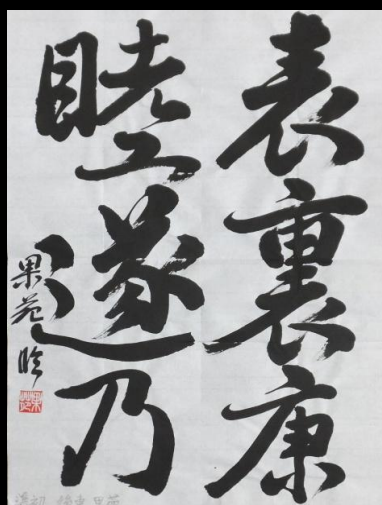 表裏康
睦遂乃
果苑臨